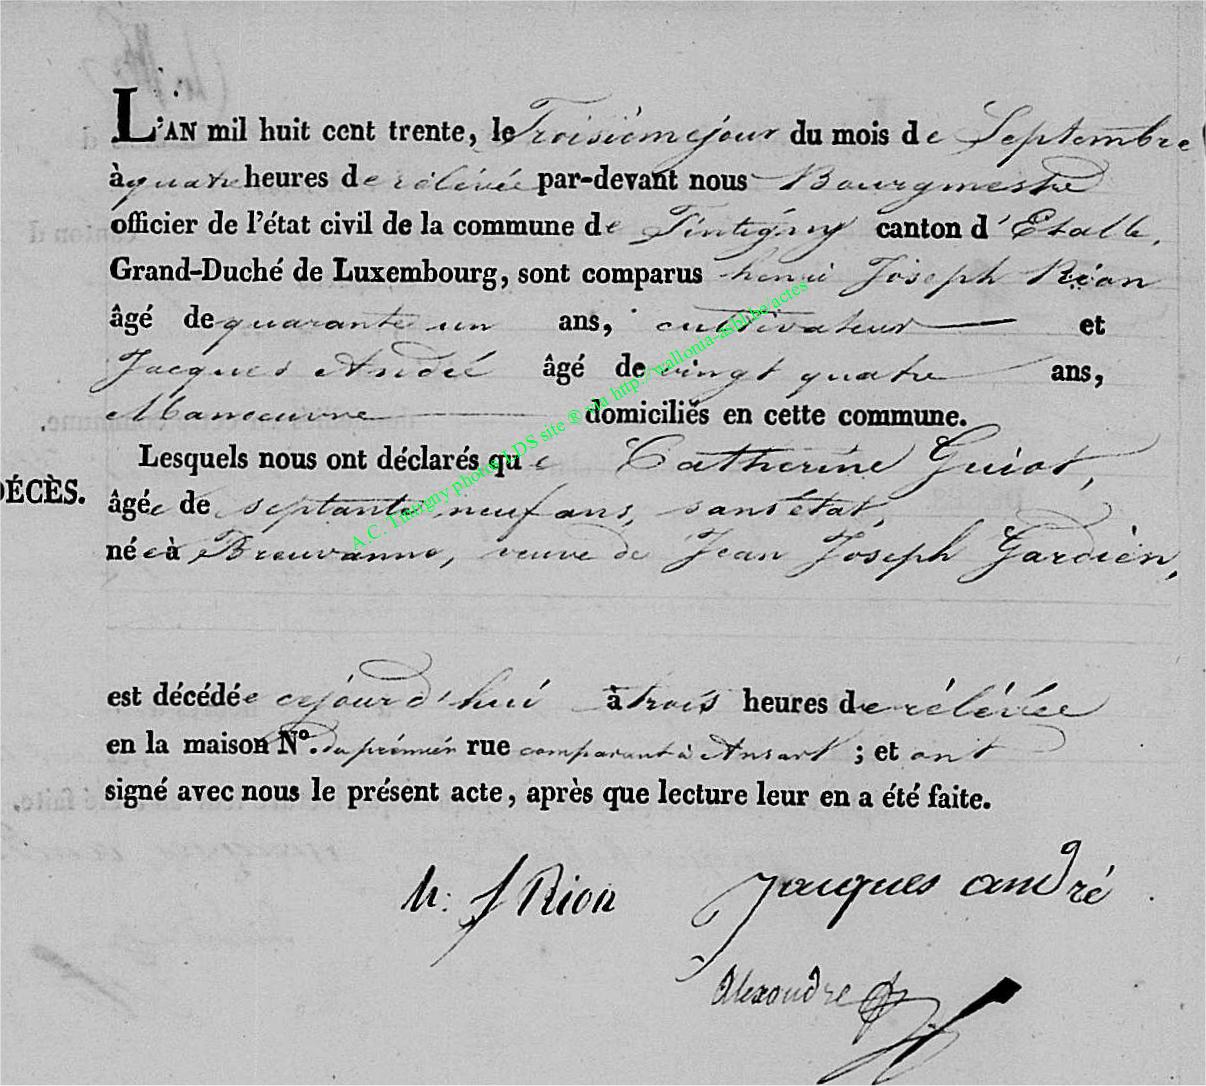 L'AN mil huit cent trente, le Troisième jour du mois de Septembre
à quatre heures de rélévée par-devant nous Bourgmestre
officier de l'état civil de la commune de Tintigny canton d'Etalle,
Grand-Duché de Luxembourg, sont comparus henri Joseph Rion
âgé de quarante un ans, cultivateur et
Jacques André âgé de vingt quatre ans,
Manœuvre domiciliés en cette commune.
Lesquels nous ont déclarés que Catherine Guiot,
DÉCÈS.
âgée de septante neuf ans, sans état,
née à Breuvanne, veuve de Jean Joseph Gardien,
est décédée cejourd'hui à trois heures de rélévée
en la maison N°. du prémier rue comparant à Ansart ; et ont
signé avec nous le présent acte, après que lecture leur en a été faite.
h. J Rion
Jacques andré
Alexandre
A.C. Tintigny photos LDS site ® via http://wallonia-asbl.be/actes